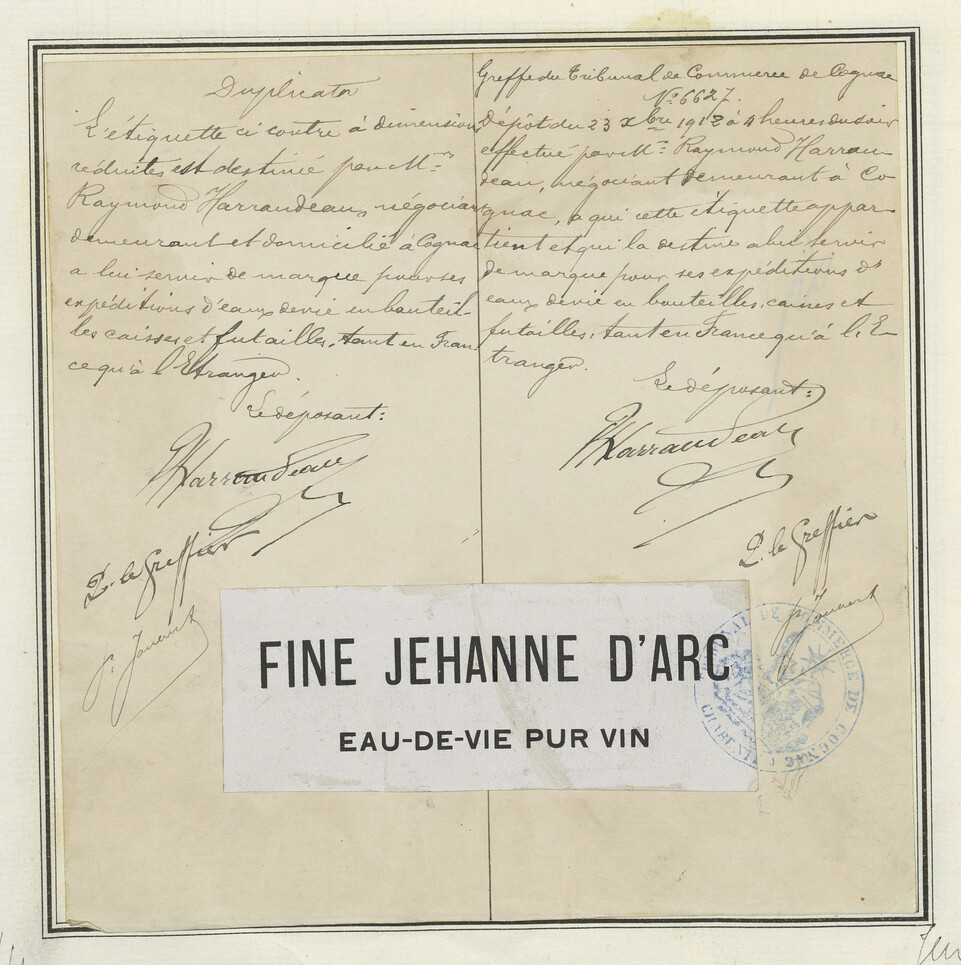 Duplicata
L'étiquette ci contre à dimensions
réduites est destinée par Mr
Raymond Harraudeau, négociant
demeurant et domicilié à Cognac
a lui servir de marque pour ses
expéditions d'eaux devie en bouteil-
les caisses et futailles, tant en Fran
ce qu'à l'Etranger.
Le déposant:
Harraudeau
P. le Greffier
Greffe du Tribunal de Commerce de Cognac
No 6627.
Dépôt du 23 Xbre 1912 à 4 heures du soir
effectué par Mr Raymond Harrau-
deau, négociant demeurant à Co
gnac, a qui cette étiquette appar
tient et qui la destine a lui servir
de marque pour ses expéditions d'
eaux devie en bouteilles, caisses et
futailles, tant en France qu'à l'E-
tranger.
Le déposant:
Harraudeau
P. le Greffier
FINE JEHANNE D'ARC
EAU-DE-VIE PUR VIN
TRIBUNAL DE COMMERCE DE COGNAC
CHARENTE